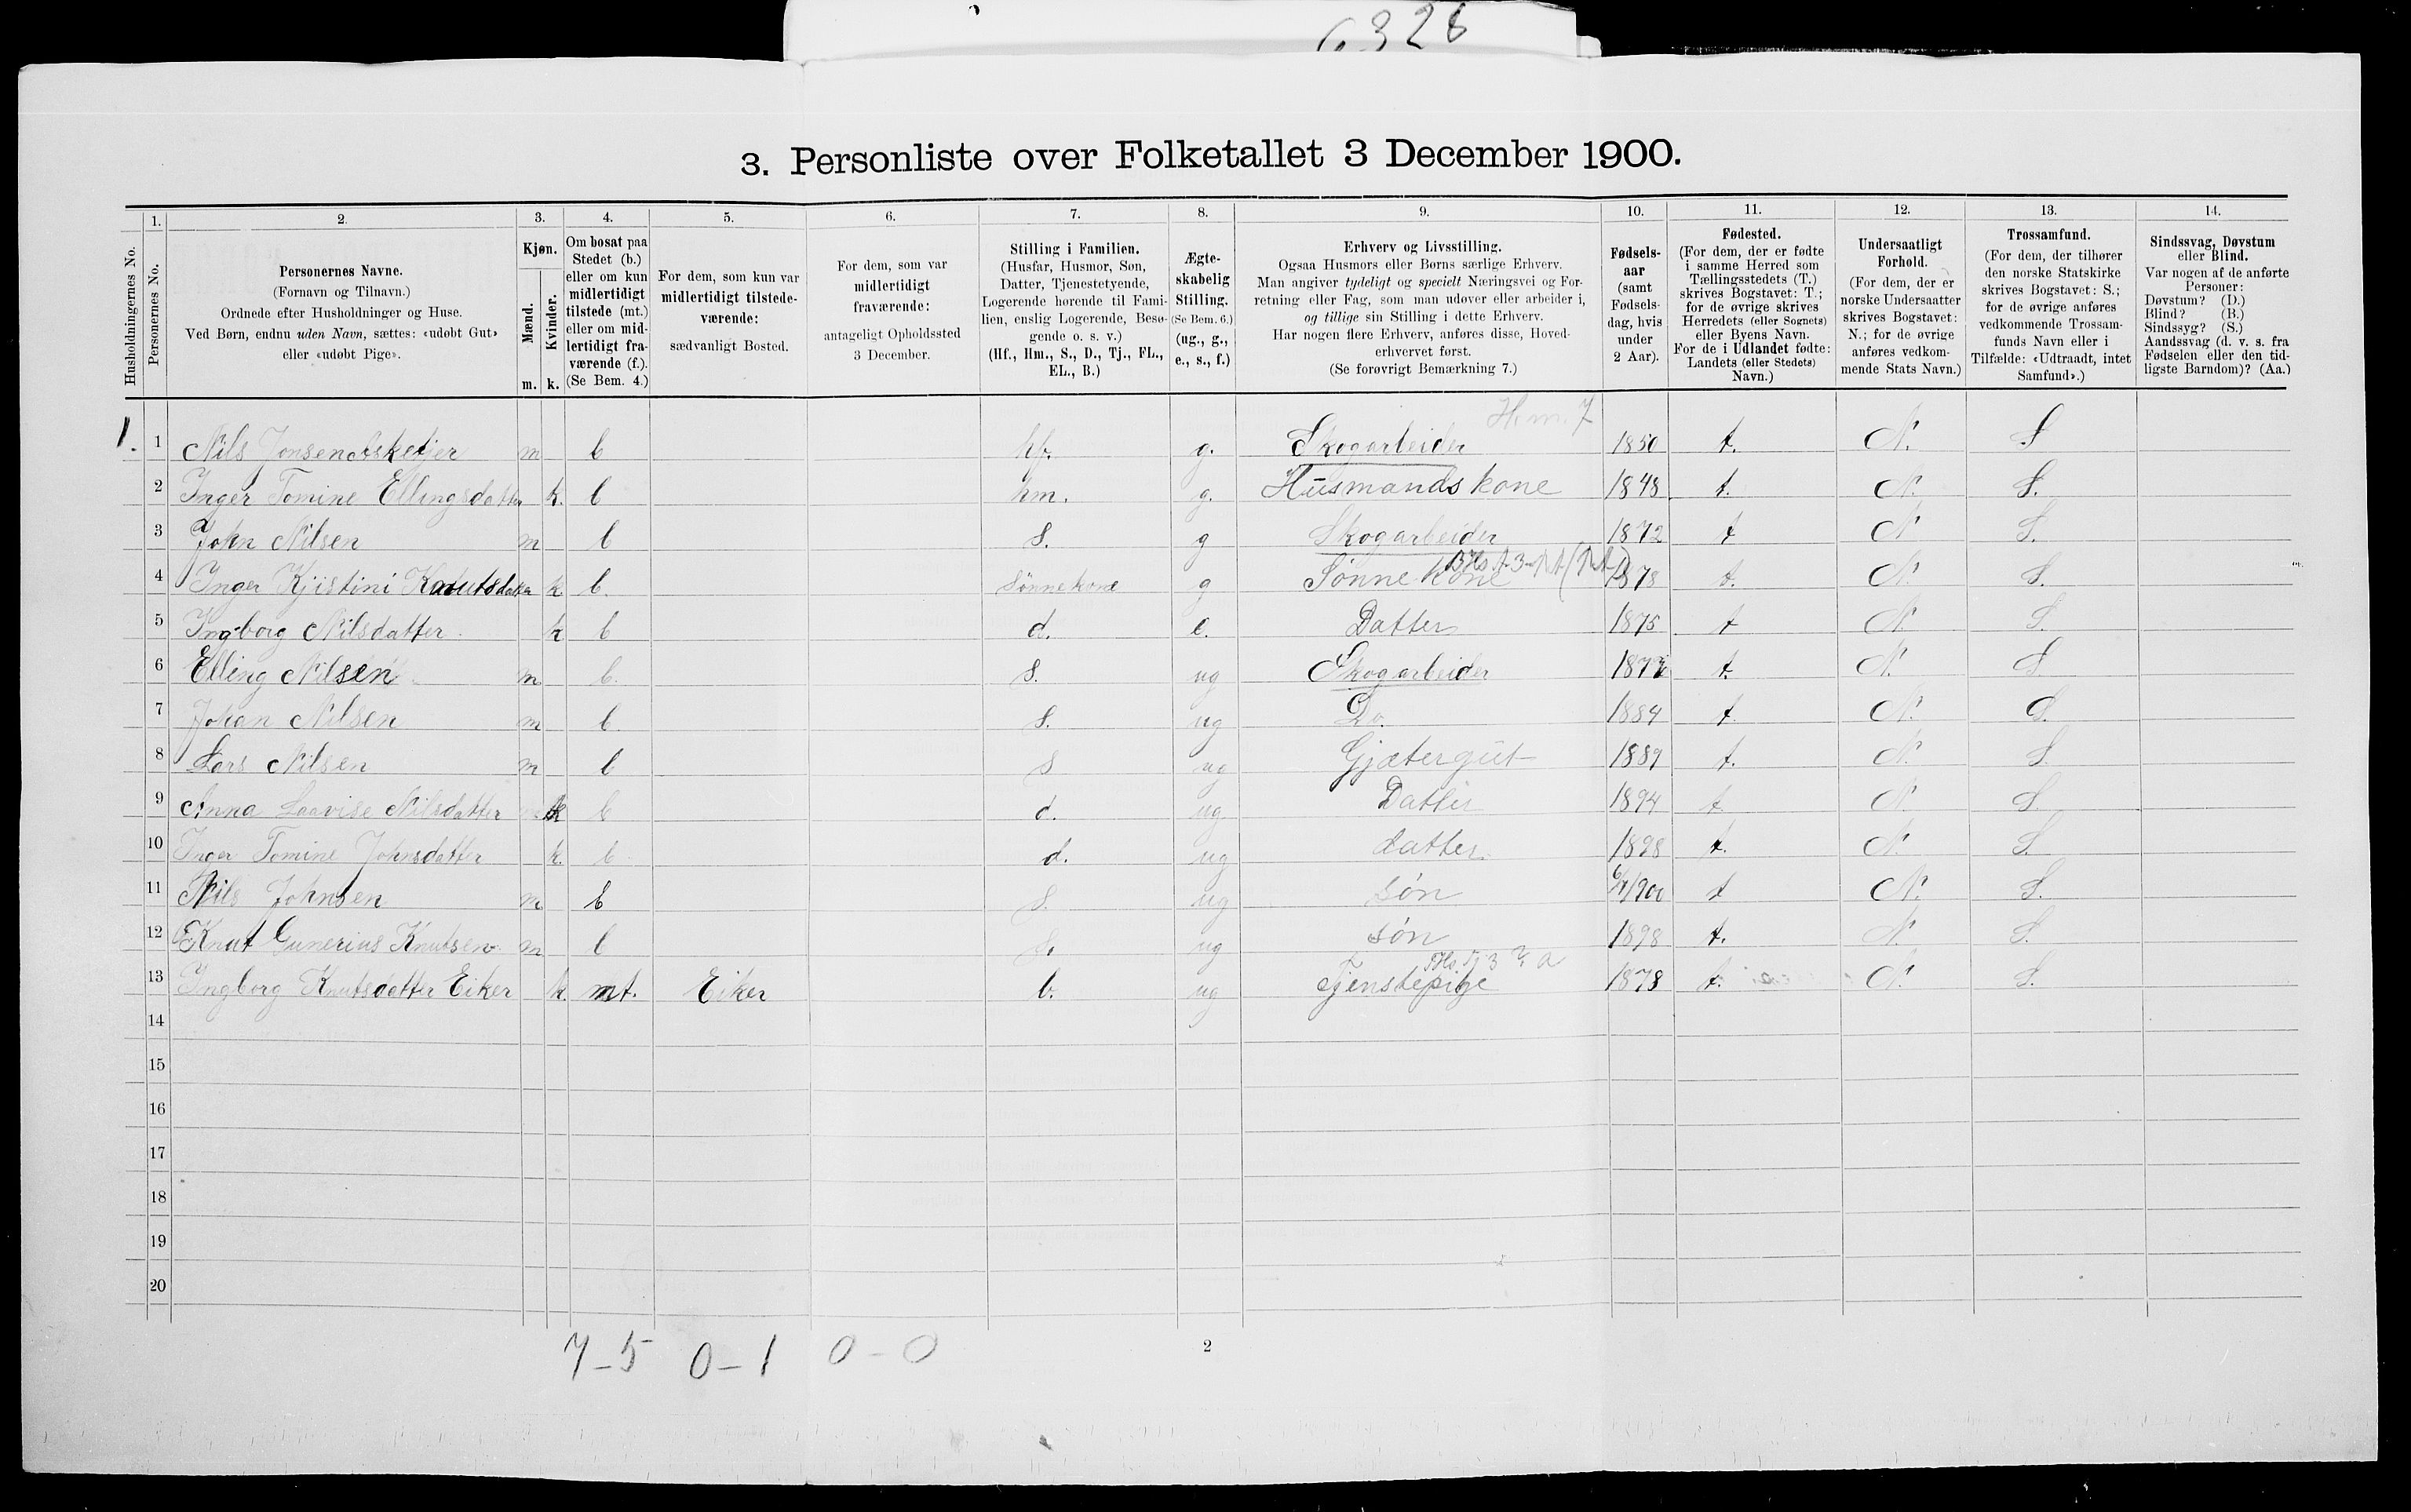 6328
3. Personliste over Folketallet 3 December 1900.
1. 2. 3. 4. 5. 6. 7. 8. 9. 10. 11. 12. 13. 14.
Husholdningernes No.
Personernes No.
Personernes Navne.
(Fornavn og Tilnavn.)
Ordnede efter Husholdninger og Huse.
Ved Børn, endnu uden Navn, sættes: «udøbt Gut»
eller «udøbt Pige».
Kjøn.
Mænd.
Kvinder.
m. k.
Om bosat paa
Stedet (b.)
eller om kun
midlertidigt
tilstede (mt.)
eller om mid-
lertidigt fra-
værende (f.).
(Se Bem. 4.)
For dem, som kun var
midlertidigt tilstede-
værende:
sædvanligt Bosted.
For dem, som var
midlertidigt
fraværende:
antageligt Opholdssted
3 December.
Stilling i Familien.
(Husfar, Husmor, Søn,
Datter, Tjenestetyende,
Logerende hørende til Fami-
lien, enslig Logerende, Besø-
gende o. s. v.)
(Hf., Hm., S., D., Tj., FL.,
EL., B.)
Ægte-
skabelig
Stilling.
(Se Bem. 6.)
(ug., g.,
e., s., f.)
Erhverv og Livsstilling.
Ogsaa Husmors eller Børns særlige Erhverv.
Man angiver tydeligt og specielt Næringsvei og For-
retning eller Fag, som man udøver eller arbeider i,
og tillige sin Stilling i dette Erhverv.
Har nogen flere Erhverv, anføres disse, Hoved-
erhvervet først.
(Se forøvrigt Bemærkning 7.)
Fødsels-
aar
(samt
Fødsels-
dag, hvis
under
2 Aar).
Fødested.
(For dem, der er fødte
i samme Herred som
Tællingsstedets (T.)
skrives Bogstavet: T.;
for de øvrige skrives
Herredets (eller Sognets)
eller Byens Navn.
For de i Udlandet fødte:
Landets (eller Stedets)
Navn.)
Undersaatligt
Forhold.
(For dem, der er
norske Undersaatter
skrives Bogstavet:
N.; for de øvrige
anføres vedkom-
mende Stats Navn.)
Trossamfund.
(For dem, der tilhører
den norske Statskirke
skrives Bogstavet: S.;
for de øvrige anføres
vedkommende Trossam-
funds Navn eller i
Tilfælde: «Udtraadt, intet
Samfund».)
Sindssvag, Døvstum
eller Blind.
Var nogen af de anførte
Personer:
Døvstum? (D.)
Blind? (B.)
Sindssyg? (S.)
Aandssvag (d. v. s. fra
Fødselen eller den tid-
ligste Barndom)? (Aa.)
Hm. 7
1. 1 Nils Jonsen m b hf. g. Skogarbeider 1850 t. N. S
2 Inger Tomine Ellingsdatter k. b hm. g. Husmandskone 1848 t. N. S.
3 John Nilsen m b S. g Skogarbeider 1872 t N S.
4 Inger Kjistini Knutsdatter k b. Sønnekone g Sønnekone 1878 t. N. S.
5 Ingborg Nilsdatter k b d. e. Datter 1875 t N. S.
6 Elling Nilsen m b. S. ug Skogarbeider t. N. S
7 Johan Nilsen m b S. ug Do. 1884 t. N. S.
8 Lars Nilsen m b S ug Gjætergut 1889 t. N. S.
9 Anna Laavise Nilsdatter k b d. ug Datter 1894 t. N. S.
10 Inger Tomine Johnsdatter k. b d. ug datter. 1898 t. N. S.
11 Nils Johnsen m b S. ug søn 1900 t N. S.
12 Knut Gunerius Knutsen m b S. ug søn 1898 t. N. S.
13 Ingborg Knutsdatter Eiker k. mt. Eiker b. ug Tjenstepige 1878 t. N. S.
14
15
16
17
18
19
20
7-5 0-1 0-0
2